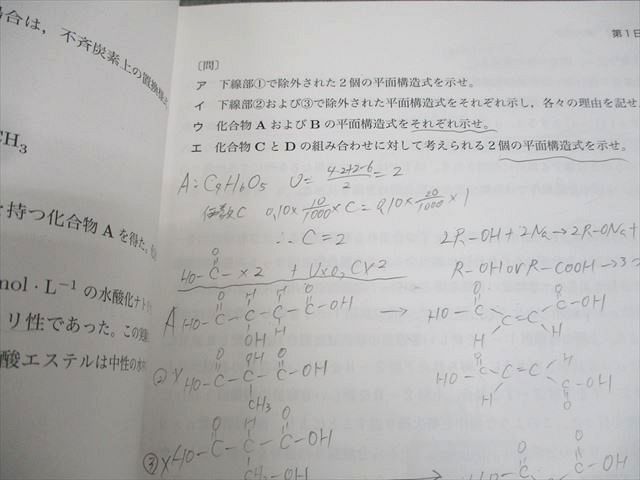 合は，不斉炭素上の置換
CH3
持つ化合物 A を得た。
mol・L−1 の水酸化ナト
リ性であった。この
酸エステルは中性の水
第1日
〔問〕
ア 下線部①で除外された2個の平面構造式を示せ。
イ 下線部②および③で除外された平面構造式をそれぞれ示し，各々の理由を記せ
ウ 化合物 A および B の平面構造式をそれぞれ示せ。
エ 化合物 C と D の組み合わせに対して考えられる2個の平面構造式を示せ。
A: C4H6O5 U= 4·2+2−6 / 2 = 2
価数C 0.10× 10/1000 ×C = 0.10× 20/1000 ×1
∴ C=2
2R-OH + 2Na → 2R-ONa +
HO-C- ×2 + U×0, C×2
O
R-OH or R-COOH →
A HO-C-C-C-C-OH →
O H H O
OH H
HO-C C=C C-OH
O O
H H
② × HO-C-C-C-OH
O OH O
CH3
HO-C C=C H
O
H C-OH
O
③ × HO-C-C-C-OH
O H O
CH2-OH